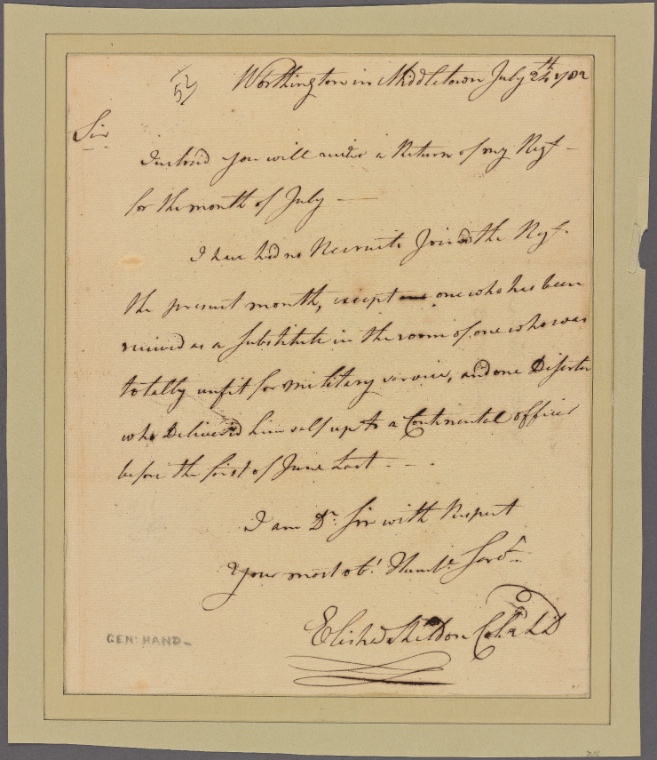 57
Worthington in Middletown July 24th 1782
Sir
Inclos'd you will receive a Return of my Regt
for the month of July
I have had no Recruits Joined the Regt
the present month, except one who has been
received as a Substitute in the room of one who was
totally unfit for military service, and one Deserter
who Deliver'd himself up to a Continental officer
before the first of June last
I am Dr Sir with Respect
Your most obt Humbe Servt
Elisha Sheldon Col 2d LD
GEN: HAND-